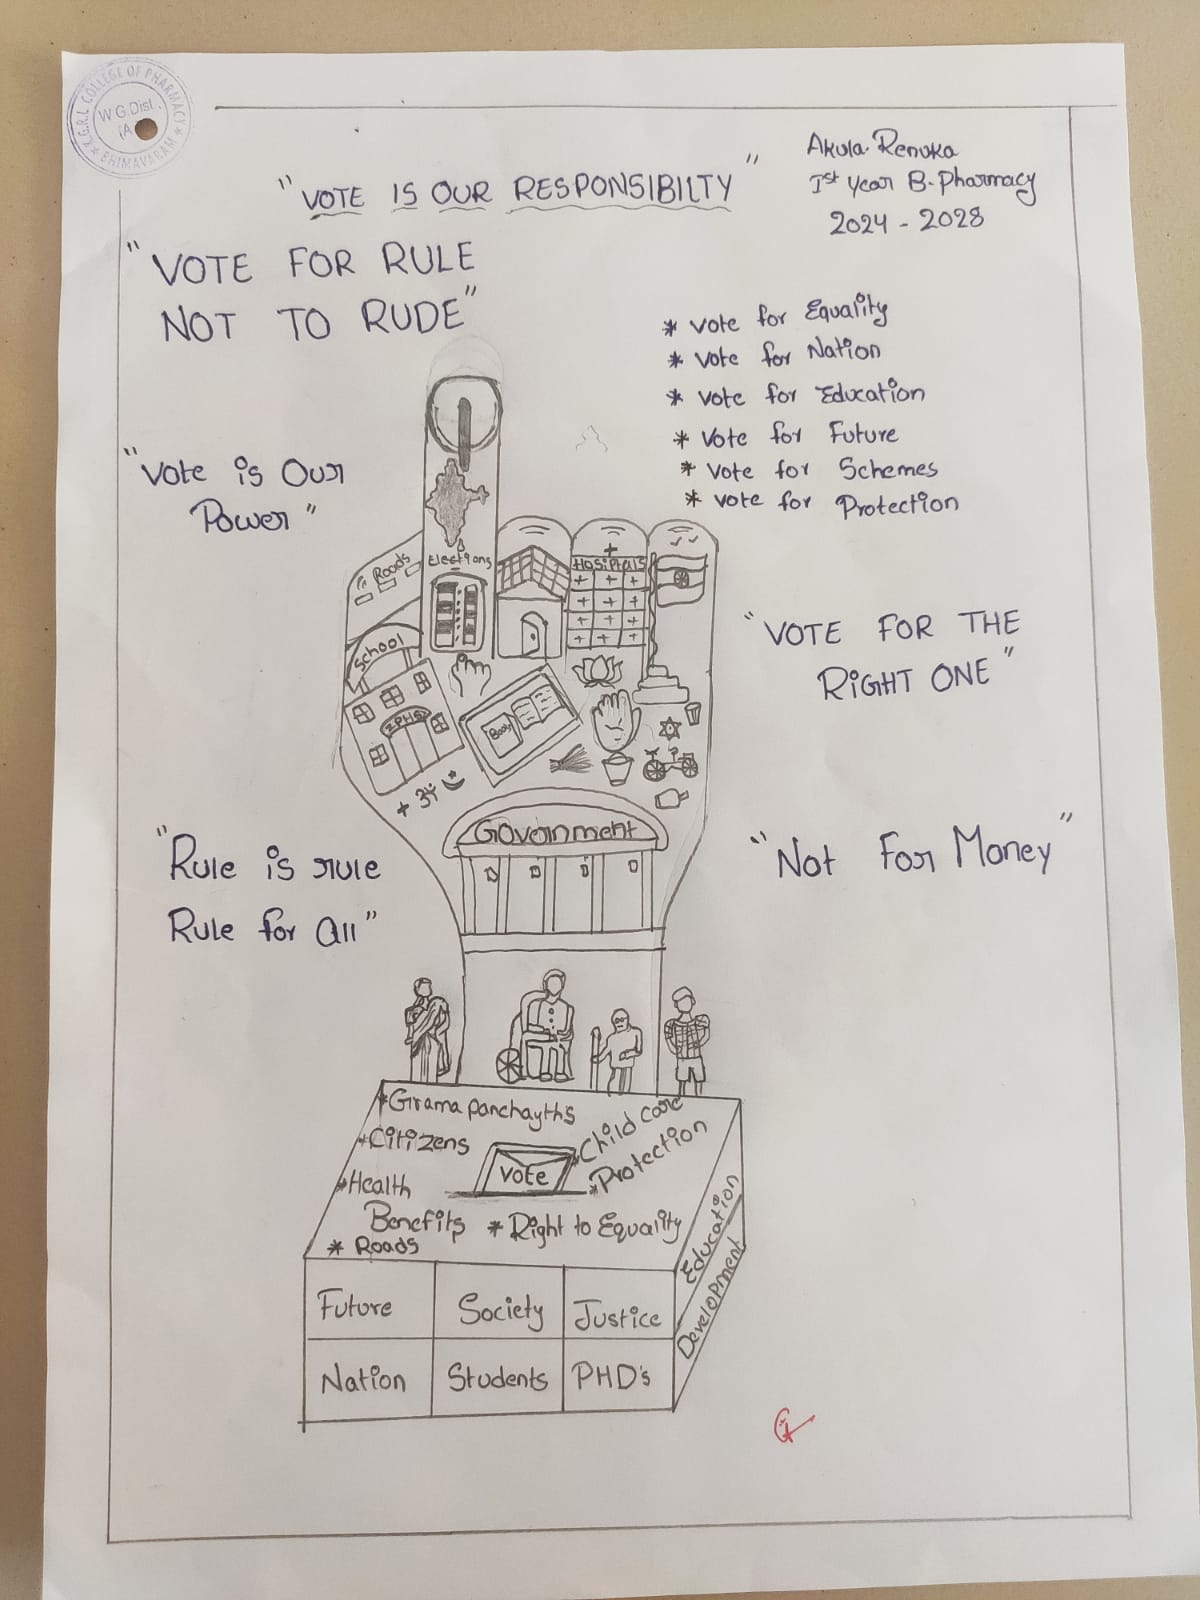 K.G.R.L COLLEGE OF PHARMACY
W.G.Dist.
(A
BHIMAVARAM
Akula. Renuka
Ist Year B-Pharmacy
2024 - 2028
"VOTE IS OUR RESPONSIBILTY"
"VOTE FOR RULE
NOT TO RUDE"
* Vote for Equality
* Vote for Nation
* Vote for Education
* Vote for Future
* Vote for Schemes
* Vote for Protection
"Vote is Our
Power"
Roads
Elections
HOSiPtalS
School
ZPHS
Book
"VOTE FOR THE
RiGHT ONE"
Government
"Rule is rule
Rule for All"
"Not For Money"
*Grama panchayths
*Citizens
*Child care
*Protection
*Health
Benefits
Vote
* Right to Equality
* Roads
Education
Development
Future
Society
Justice
Nation
Students
PHD's